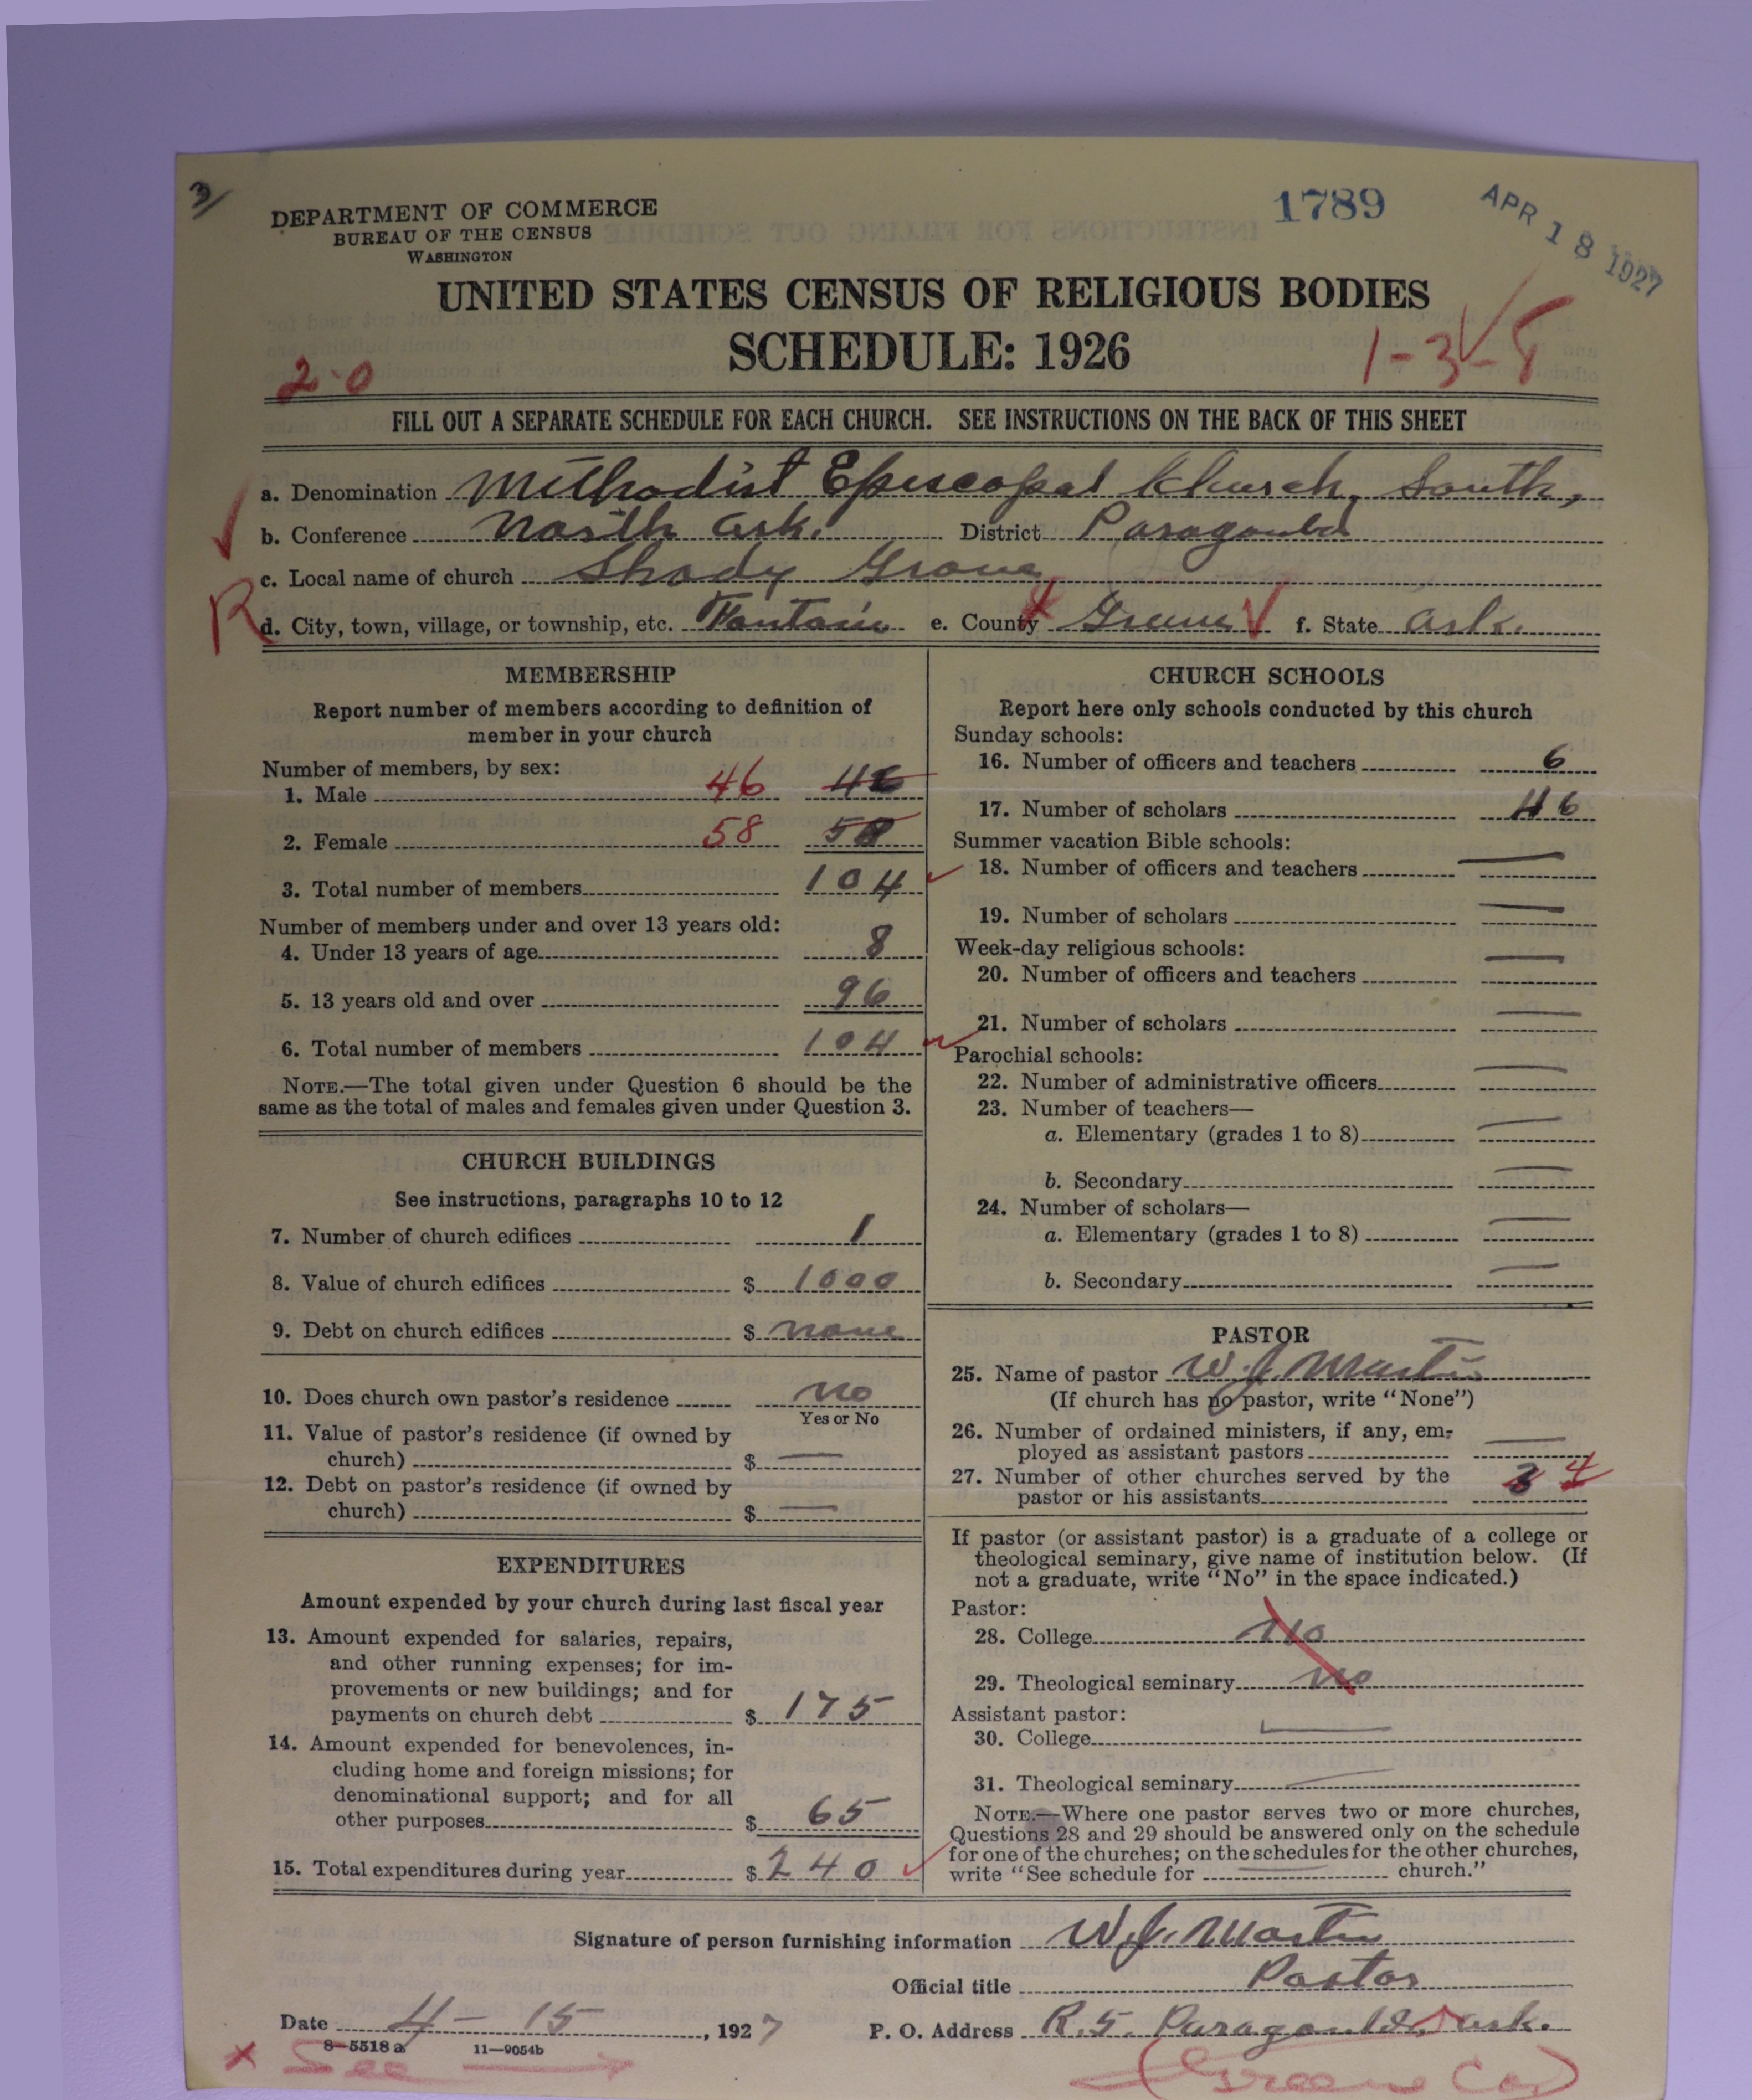 3/
DEPARTMENT OF COMMERCE
BUREAU OF THE CENSUS
WASHINGTON
1789
APR 18 1927
UNITED STATES CENSUS OF RELIGIOUS BODIES
SCHEDULE: 1926
2-0
1-3-8
FILL OUT A SEPARATE SCHEDULE FOR EACH CHURCH. SEE INSTRUCTIONS ON THE BACK OF THIS SHEET
a. Denomination Methodist Episcopal Church, South,
b. Conference North Ark. District Paragould
c. Local name of church Shady Grove
R d. City, town, village, or township, etc. Fontain e. County Greene f. State Ark.
MEMBERSHIP
Report number of members according to definition of
member in your church
Number of members, by sex:
1. Male 46 46
2. Female 58 58
3. Total number of members 104
Number of members under and over 13 years old:
4. Under 13 years of age 8
5. 13 years old and over 96
6. Total number of members 104
NOTE.—The total given under Question 6 should be the
same as the total of males and females given under Question 3.
CHURCH BUILDINGS
See instructions, paragraphs 10 to 12
7. Number of church edifices 1
8. Value of church edifices $ 1000
9. Debt on church edifices $ none
10. Does church own pastor's residence no
Yes or No
11. Value of pastor's residence (if owned by
church) $ —
12. Debt on pastor's residence (if owned by
church) $ —
EXPENDITURES
Amount expended by your church during last fiscal year
13. Amount expended for salaries, repairs,
and other running expenses; for im-
provements or new buildings; and for
payments on church debt $ 175
14. Amount expended for benevolences, in-
cluding home and foreign missions; for
denominational support; and for all
other purposes $ 65
15. Total expenditures during year $ 240
CHURCH SCHOOLS
Report here only schools conducted by this church
Sunday schools:
16. Number of officers and teachers 6
17. Number of scholars 46
Summer vacation Bible schools:
18. Number of officers and teachers —
19. Number of scholars —
Week-day religious schools:
20. Number of officers and teachers —
21. Number of scholars —
Parochial schools:
22. Number of administrative officers —
23. Number of teachers—
a. Elementary (grades 1 to 8) —
b. Secondary —
24. Number of scholars—
a. Elementary (grades 1 to 8) —
b. Secondary —
PASTOR
25. Name of pastor W. J. Martin
(If church has no pastor, write "None")
26. Number of ordained ministers, if any, em-
ployed as assistant pastors —
27. Number of other churches served by the
pastor or his assistants 3 4
If pastor (or assistant pastor) is a graduate of a college or
theological seminary, give name of institution below. (If
not a graduate, write "No" in the space indicated.)
Pastor:
28. College No
29. Theological seminary No
Assistant pastor:
30. College —
31. Theological seminary —
NOTE.—Where one pastor serves two or more churches,
Questions 28 and 29 should be answered only on the schedule
for one of the churches; on the schedules for the other churches,
write "See schedule for — church."
Signature of person furnishing information W. J. Martin
Official title Pastor
Date 4 - 15, 1927 P. O. Address R. 5. Paragould, Ark.
8-5518 a 11-9054b
x See (Greene Co)